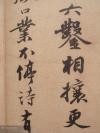 六鑿相攘更
業不停詩有